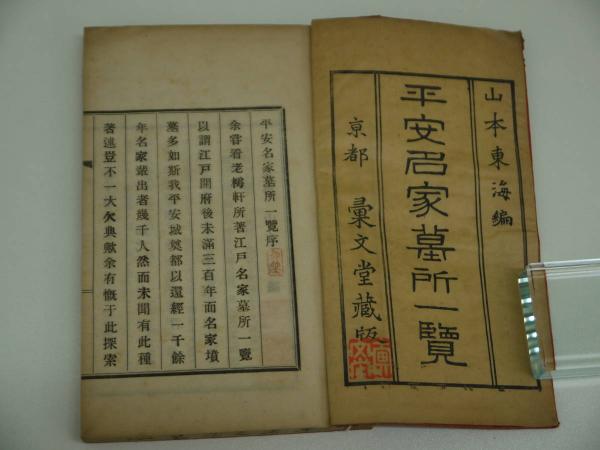 山本東海編
平安名家墓所一覽
京都 彙文堂藏版
平安名家墓所一覽序
余嘗看老樗軒所著江戸名家墓所一覽
以謂江戸開府後未滿三百年而名家墳
墓多如斯我平安城奠都以還經一千餘
年名家輩出者幾千人然而未聞有此種
著述豈不一大欠典歟余有慨于此探索